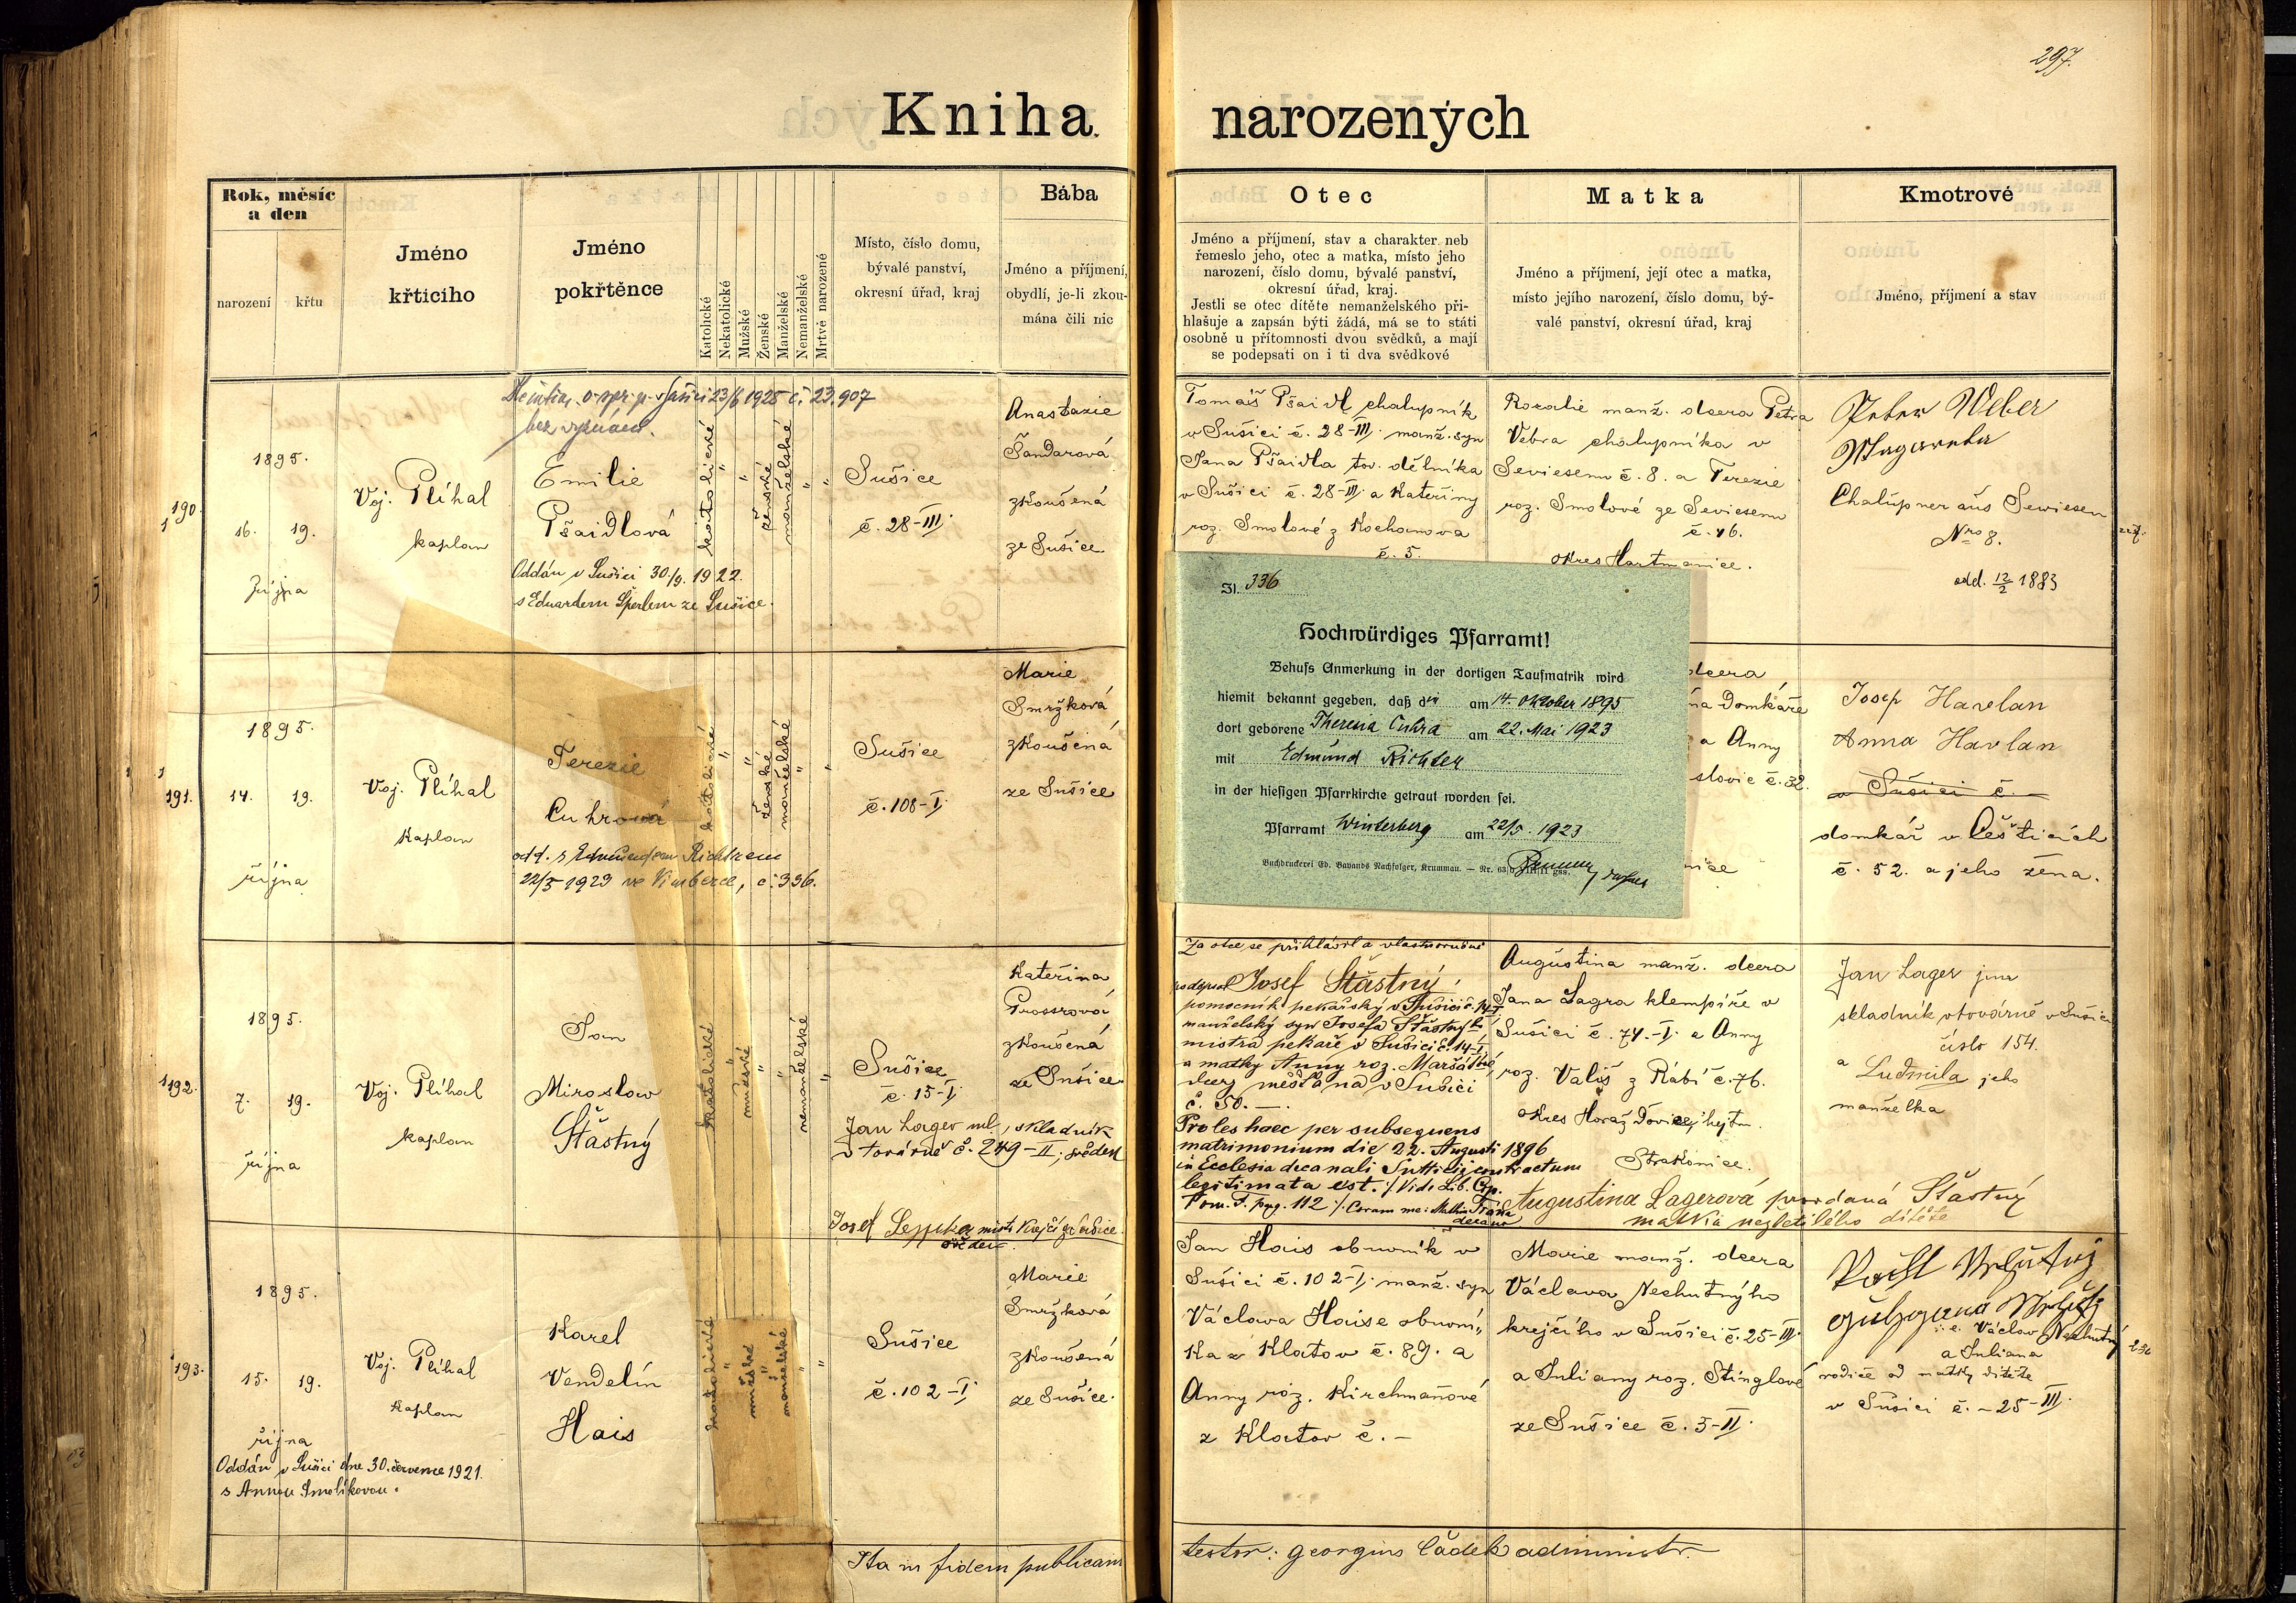 297.
Kniha narozených
Rok, měsíc
a den
narození
křtu
Jméno
křticího
Jméno
pokřtěnce
Katolické
Nekatolické
Mužské
Ženské
Manželské
Nemanželské
Mrtvě narozené
Místo, číslo domu,
bývalé panství,
okresní úřad, kraj
Bába
Jméno a příjmení,
obydlí, je-li zkou-
mána čili nic
Otec
Jméno a příjmení, stav a charakter neb
řemeslo jeho, otec a matka, místo jeho
narození, číslo domu, bývalé panství,
okresní úřad, kraj.
Jestli se otec dítěte nemanželského při-
hlašuje a zapsán býti žádá, má se to státi
osobně u přítomnosti dvou svědků, a mají
se podepsati on i ti dva svědkové
Matka
Jméno a příjmení, její otec a matka,
místo jejího narození, číslo domu, bý-
valé panství, okresní úřad, kraj
Kmotrové
Jméno, příjmení a stav
190.
1895.
16. 19.
října
Voj. Plíhal
kaplan
23/6 1925 č. 23.907
bez vyznání.
Emilie
Pšaidlová
Oddán v Sušici 30./9. 1922.
s Eduardem Šperlem ze Sušice.
katolické
"
"
ženské
manželské
"
"
Sušice
č. 28-III.
Anastazie
Šandarová
zkoušená
ze Sušice
Tomáš Pšaidl chalupník
v Sušici č. 28-III. manž. syn
Jana Pšaidla tov. dělníka
v Sušici č. 28-III. a Kateřiny
roz. Smolové z Kochanova
č. 5.
Rozalie manž. dcera Petra
Vebra chalupníka v
Seviesenu č. 8. a Terezie
roz. Smolové ze Seviesenu
č. 46.
okres Hartmanice.
Peter Weber
Margaretha
Chalupner aus Sewiesen
Nro 8.
odd. 12/2 1883
191.
1895.
14. 19.
října
Voj. Plíhal
kaplan
Terezie
Cuhrová
odd. s Edmundem Richtrem
22/5 1923 ve Vimberce, č. 336.
katolické
"
"
ženské
manželské
"
"
Sušice
č. 108-I.
Marie
Smržková
zkoušená
ze Sušice
Zl. 336
Hochwürdiges Pfarramt!
Behufs Anmerkung in der dortigen Taufmatrik wird
hiemit bekannt gegeben, daß die am 14. Oktober 1895
dort geborene Theresia Cuhra am 22. Mai 1923
mit Edmund Richter
in der hiesigen Pfarrkirche getraut worden sei.
Pfarramt Winterberg am 22/5. 1923
Buchdruckerei Ed. Bavands Nachfolger, Krummau. — Nr.
dcera
na Domkáře
a Anny
slovic č. 32.
nice
Josef Havlan
Anna Havlan
v Sušici č.
domkář v Češticích
č. 52. a jeho žena.
192.
1895.
7. 19.
října
Voj. Plíhal
kaplan
Jan
Miroslav
Šťastný
katolické
"
mužské
"
"
nemanželské
"
Sušice
č. 15-I.
Jan Lager ml., skladník
v továrně č. 249-II, svědek
Josef
mistr krejčí ze Sušice
svědek.
Kateřina
Prossrová
zkoušená
ze Sušice
Za otce se přihlásil a vlastnoručně
podepsal Josef Šťastný,
pomocník pekařský v Sušici č. 14-I
manželský syn Josefa Šťastného
mistra pekaře v Sušici č. 14-I
a matky Anny roz. Maršátkové,
dcery měšťana v Sušici
č. 50. —.
Proles haec per subsequens
matrimonium die 22. Augusti 1896
in Ecclesia decanali Sutticii contractum
legitimata est. /: Vide Lib. Cop.
Tom. F. pag. 112 :/. Coram me:
Augustina manž. dcera
Jana Lagra klempíře v
Sušici č. 74.-I. a Anny
roz. Vališ z Rábí č. 76.
okres Horažďovice, hejtm.
Strakonice.
Augustina Lagerová provdaná Šťastný
matka nezletilého dítěte
Jan Lager jun
skladník v továrně v Sušici
číslo 154.
a Ludmila jeho
manželka
193.
1895.
15. 19.
října
Oddán v Sušici dne 30. července 1921.
s Annou Smolíkovou.
Voj. Plíhal
kaplan
Karel
Vendelín
Hais
katolické
"
mužské
"
manželské
"
"
Sušice
č. 102-I.
Marie
Smržková
zkoušená
ze Sušice.
Jan Hais obuvník v
Sušici č. 102-I. manž. syn
Václava Haise obuvní„
ka z Klatov č. 89. a
Anny roz. Kirchmanové
z Klatov č. –
Marie manž. dcera
Václava Nechutného
krejčího v Sušici č. 25-III.
a Juliany roz. Stinglové
ze Sušice č. 5-II.
t. Václav Nechutný
a Juliana
rodiče od matky dítěte
v Sušici č. – 25-III.
Ita in fidem publicam testor: Georgius Čadek administr.